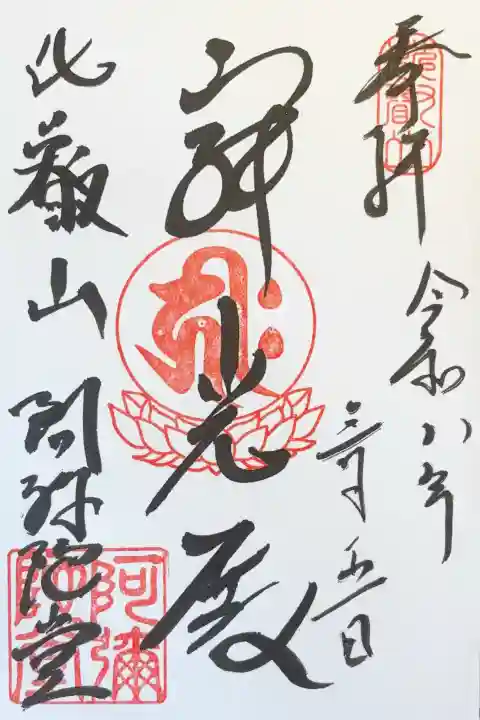 奉拝
令和八年
三月五日
無量光殿
比叡山 阿弥陀堂
比叡山
阿彌陀堂